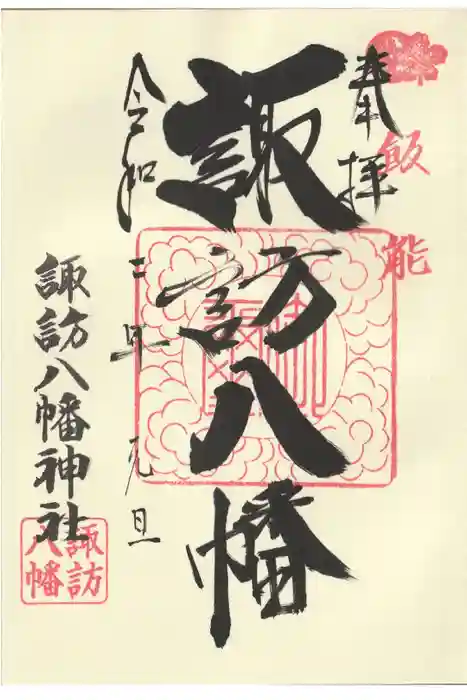 奉拝
飯能
諏訪八幡
令和二年元旦
諏訪八幡神社
諏訪
八幡